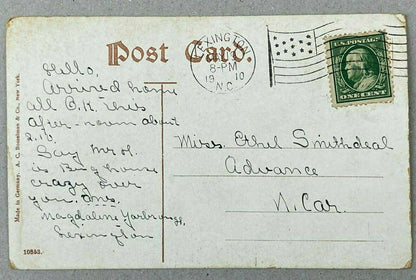 Post Card.
LEXINGTON
8-PM
19 10
N.C.
U.S. POSTAGE
ONE CENT
Hello,
Arrived home
all O.K. this
after-noon about
2.10.
Say Mr H.
is Bug house
crazy over
you. Ans.
Magdaline Yarbrough,
Lexington
Miss. Ethel Smithdeal
Advance
N. Car.
Made in Germany. A. C. Bosselman & Co., New York.
10853.